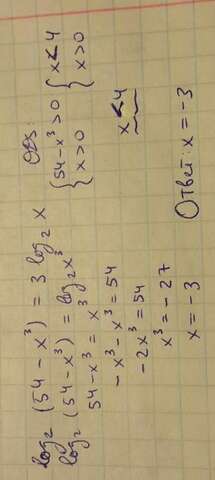 log₂ (54 - x³) = 3 log₂ x
log₂ (54 - x³) = log₂ x³
54 - x³ = x³
-x³ - x³ = 54
-2x³ = 54
x³ = -27
x = -3
ОДЗ:
{ 54 - x³ > 0 { x < 4
{ x > 0 { x > 0
x < 4
Ответ: x = -3